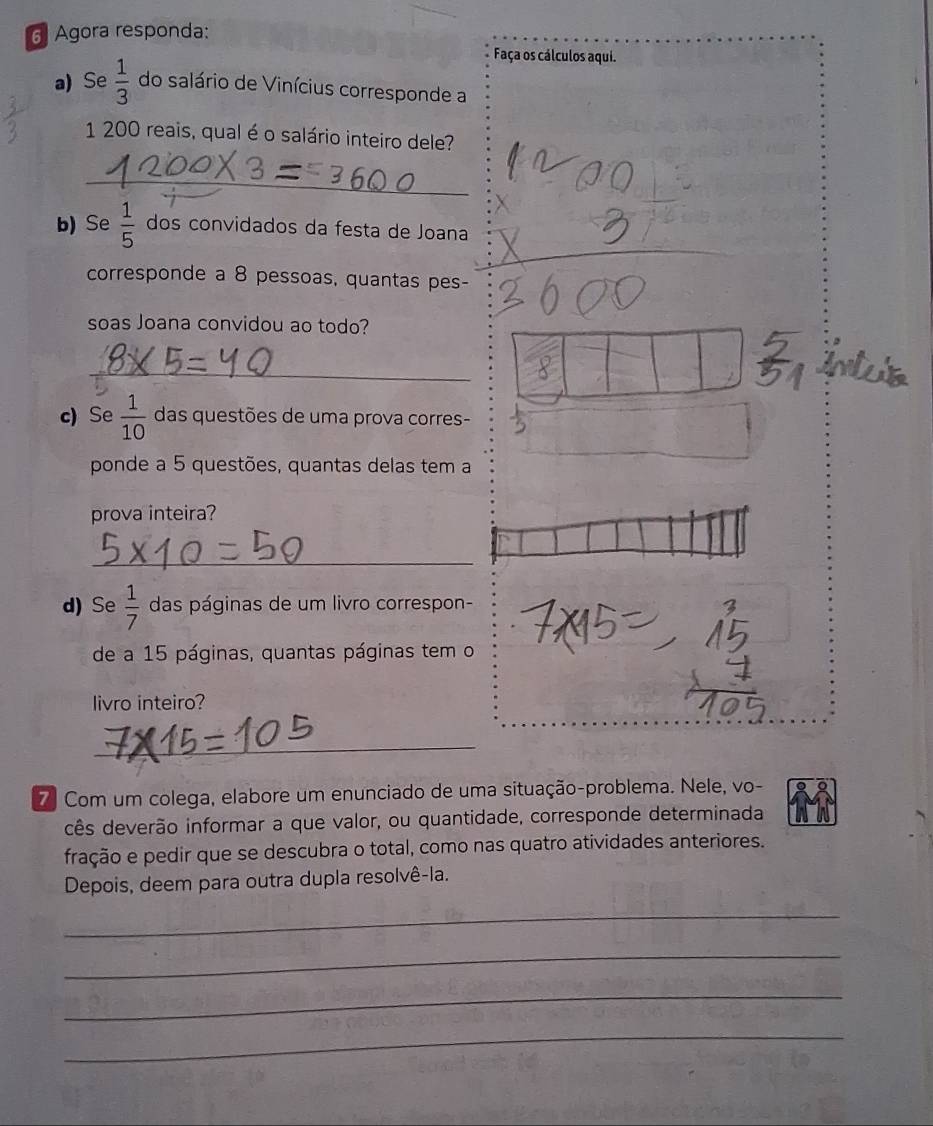 6 Agora responda:
Faça os cálculos aqui.
a) Se 1/3 do salário de Vinícius corresponde a
3/3
1 200 reais, qual é o salário inteiro dele?
1200 x 3 = 3600
1200
x 3
3600
b) Se 1/5 dos convidados da festa de Joana
corresponde a 8 pessoas, quantas pes-
soas Joana convidou ao todo?
8 x 5 = 40
8
5/5
c) Se 1/10 das questões de uma prova corres-
ponde a 5 questões, quantas delas tem a
prova inteira?
5 x 10 = 50
d) Se 1/7 das páginas de um livro correspon-
de a 15 páginas, quantas páginas tem o
livro inteiro?
7 x 15 = 105
7 x 15 =
3
15
x 7
105
7 Com um colega, elabore um enunciado de uma situação-problema. Nele, vo-
cês deverão informar a que valor, ou quantidade, corresponde determinada
fração e pedir que se descubra o total, como nas quatro atividades anteriores.
Depois, deem para outra dupla resolvê-la.